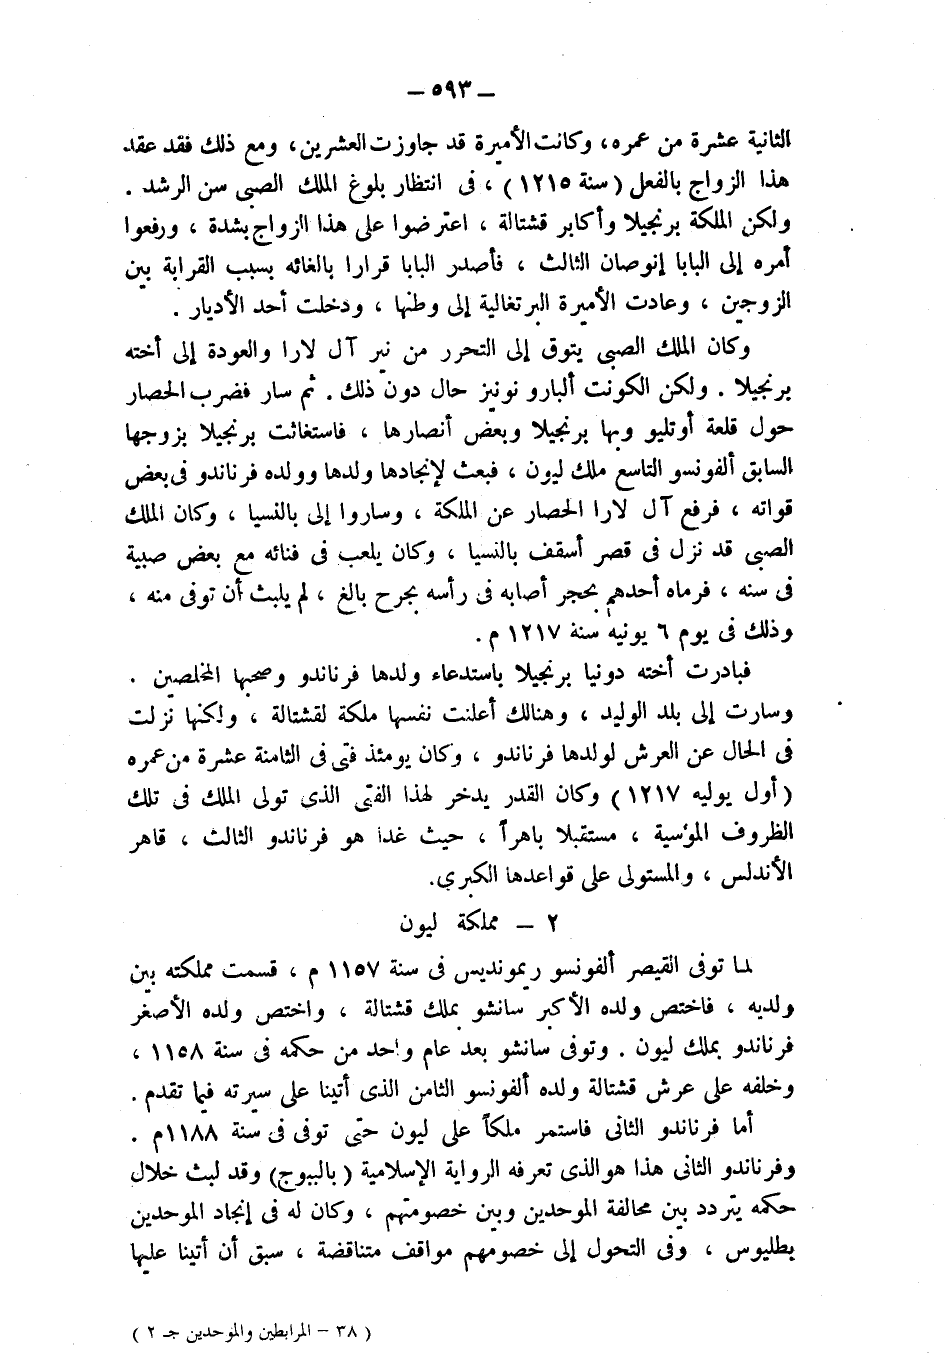 — ٥٩٣ —
الثانية عشرة من عمره، وكانت الأميرة قد جاوزت العشرين، ومع ذلك فقد عقد
هذا الزواج بالفعل (سنة ١٢١٥) ، فى انتظار بلوغ الملك الصبى سن الرشد .
ولكن الملكة برنجيلا وأكابر قشتالة ، اعترضوا على هذا الزواج بشدة ، ورفعوا
أمره إلى البابا إنوصان الثالث ، فأصدر البابا قرارا بالغائه بسبب القرابة بين
الزوجين ، وعادت الأميرة البرتغالية إلى وطنها ، ودخلت أحد الأديار .
وكان الملك الصبى يتوق إلى التحرر من نير آل لارا والعودة إلى أخته
برنجيلا . ولكن الكونت ألبارو نونيز حال دون ذلك . ثم سار فضرب الحصار
حول قلعة أوتليو وبها برنجيلا وبعض أنصارها ، فاستغاثت برنجيلا بزوجها
السابق ألفونسو التاسع ملك ليون ، فبعث لإنجادها ولدها وولده فرناندو فى بعض
قواته ، فرفع آل لارا الحصار عن الملكة ، وساروا إلى بالنسيا ، وكان الملك
الصبى قد نزل فى قصر أسقف بالنسيا ، وكان يلعب فى فنائه مع بعض صبية
فى سنه ، فرماه أحدهم بحجر أصابه فى رأسه بجرح بالغ ، لم يلبث أن توفى منه ،
وذلك فى يوم ٦ يونيه سنة ١٢١٧ م .
فبادرت أخته دونيا برنجيلا باستدعاء ولدها فرناندو وصحبها المخلصين .
وسارت إلى بلد الوليد ، وهنالك أعلنت نفسها ملكة لقشتالة ، ولكنها نزلت
فى الحال عن العرش لولدها فرناندو ، وكان يومئذ فتى فى الثامنة عشرة من عمره
(أول يوليه ١٢١٧) وكان القدر يدخر لهذا الفتى الذى تولى الملك فى تلك
الظروف المؤسية ، مستقبلا باهراً ، حيث غدا هو فرناندو الثالث ، قاهر
الأندلس ، والمستولى على قواعدها الكبرى.
٢ — مملكة ليون
لما توفى القيصر ألفونسو ريمونديس فى سنة ١١٥٧ م ، قسمت مملكته بين
ولديه ، فاختص ولده الأكبر سانشو بملك قشتالة ، واختص ولده الأصغر
فرناندو بملك ليون . وتوفى سانشو بعد عام واحد من حكمه فى سنة ١١٥٨ ،
وخلفه على عرش قشتالة ولده ألفونسو الثامن الذى أتينا على سيرته فيما تقدم .
أما فرناندو الثانى فاستمر ملكاً على ليون حتى توفى فى سنة ١١٨٨م .
وفرناندو الثانى هذا هو الذى تعرفه الرواية الإسلامية (بالببوج) وقد لبث خلال
حكمه يتردد بين محالفة الموحدين وبين خصومتهم ، وكان له فى إنجاد الموحدين
ببطليوس ، وفى التحول إلى خصومهم مواقف متناقضة ، سبق أن أتينا عليها
( ٣٨ – المرابطين والموحدين جـ ٢ )